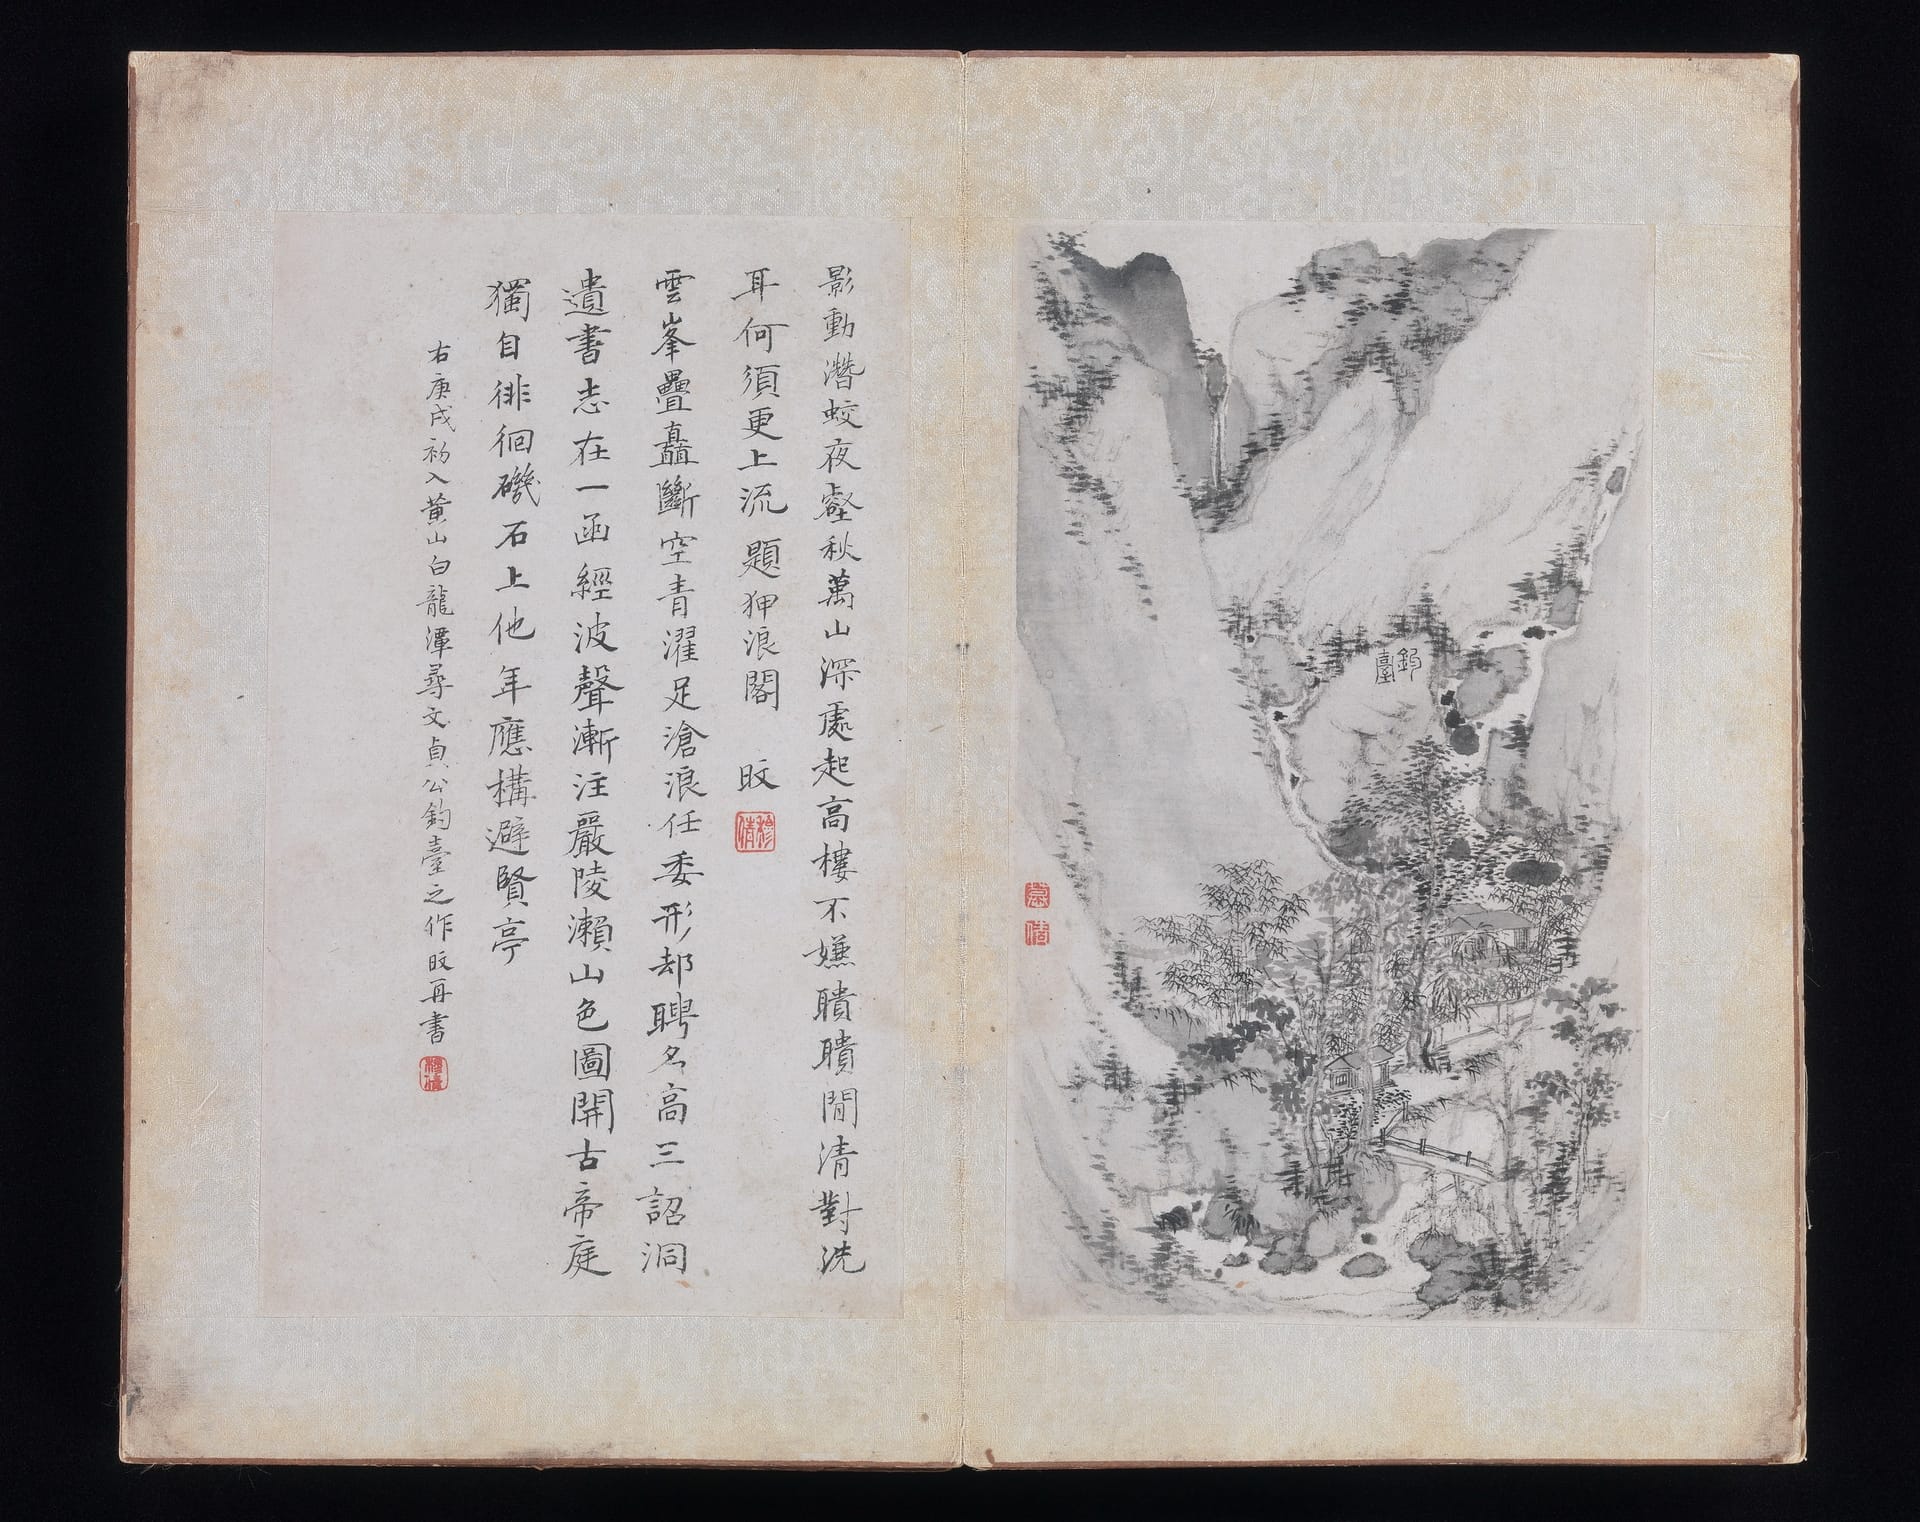 釣
臺
影動潛蛟夜壑秋萬山深處起高樓不嫌聵聵閒清對洗
耳何須更上流 題狎浪閣 旼
雲峯疊矗斷空青濯足滄浪任委形却聘名高三詔洞
遺書志在一函經波聲漸注嚴陵瀨山色圖開古帝庭
獨自徘徊磯石上他年應構避賢亭
右庚戌初入黃山白龍潭尋文貞公釣臺之作旼再書
穆倩